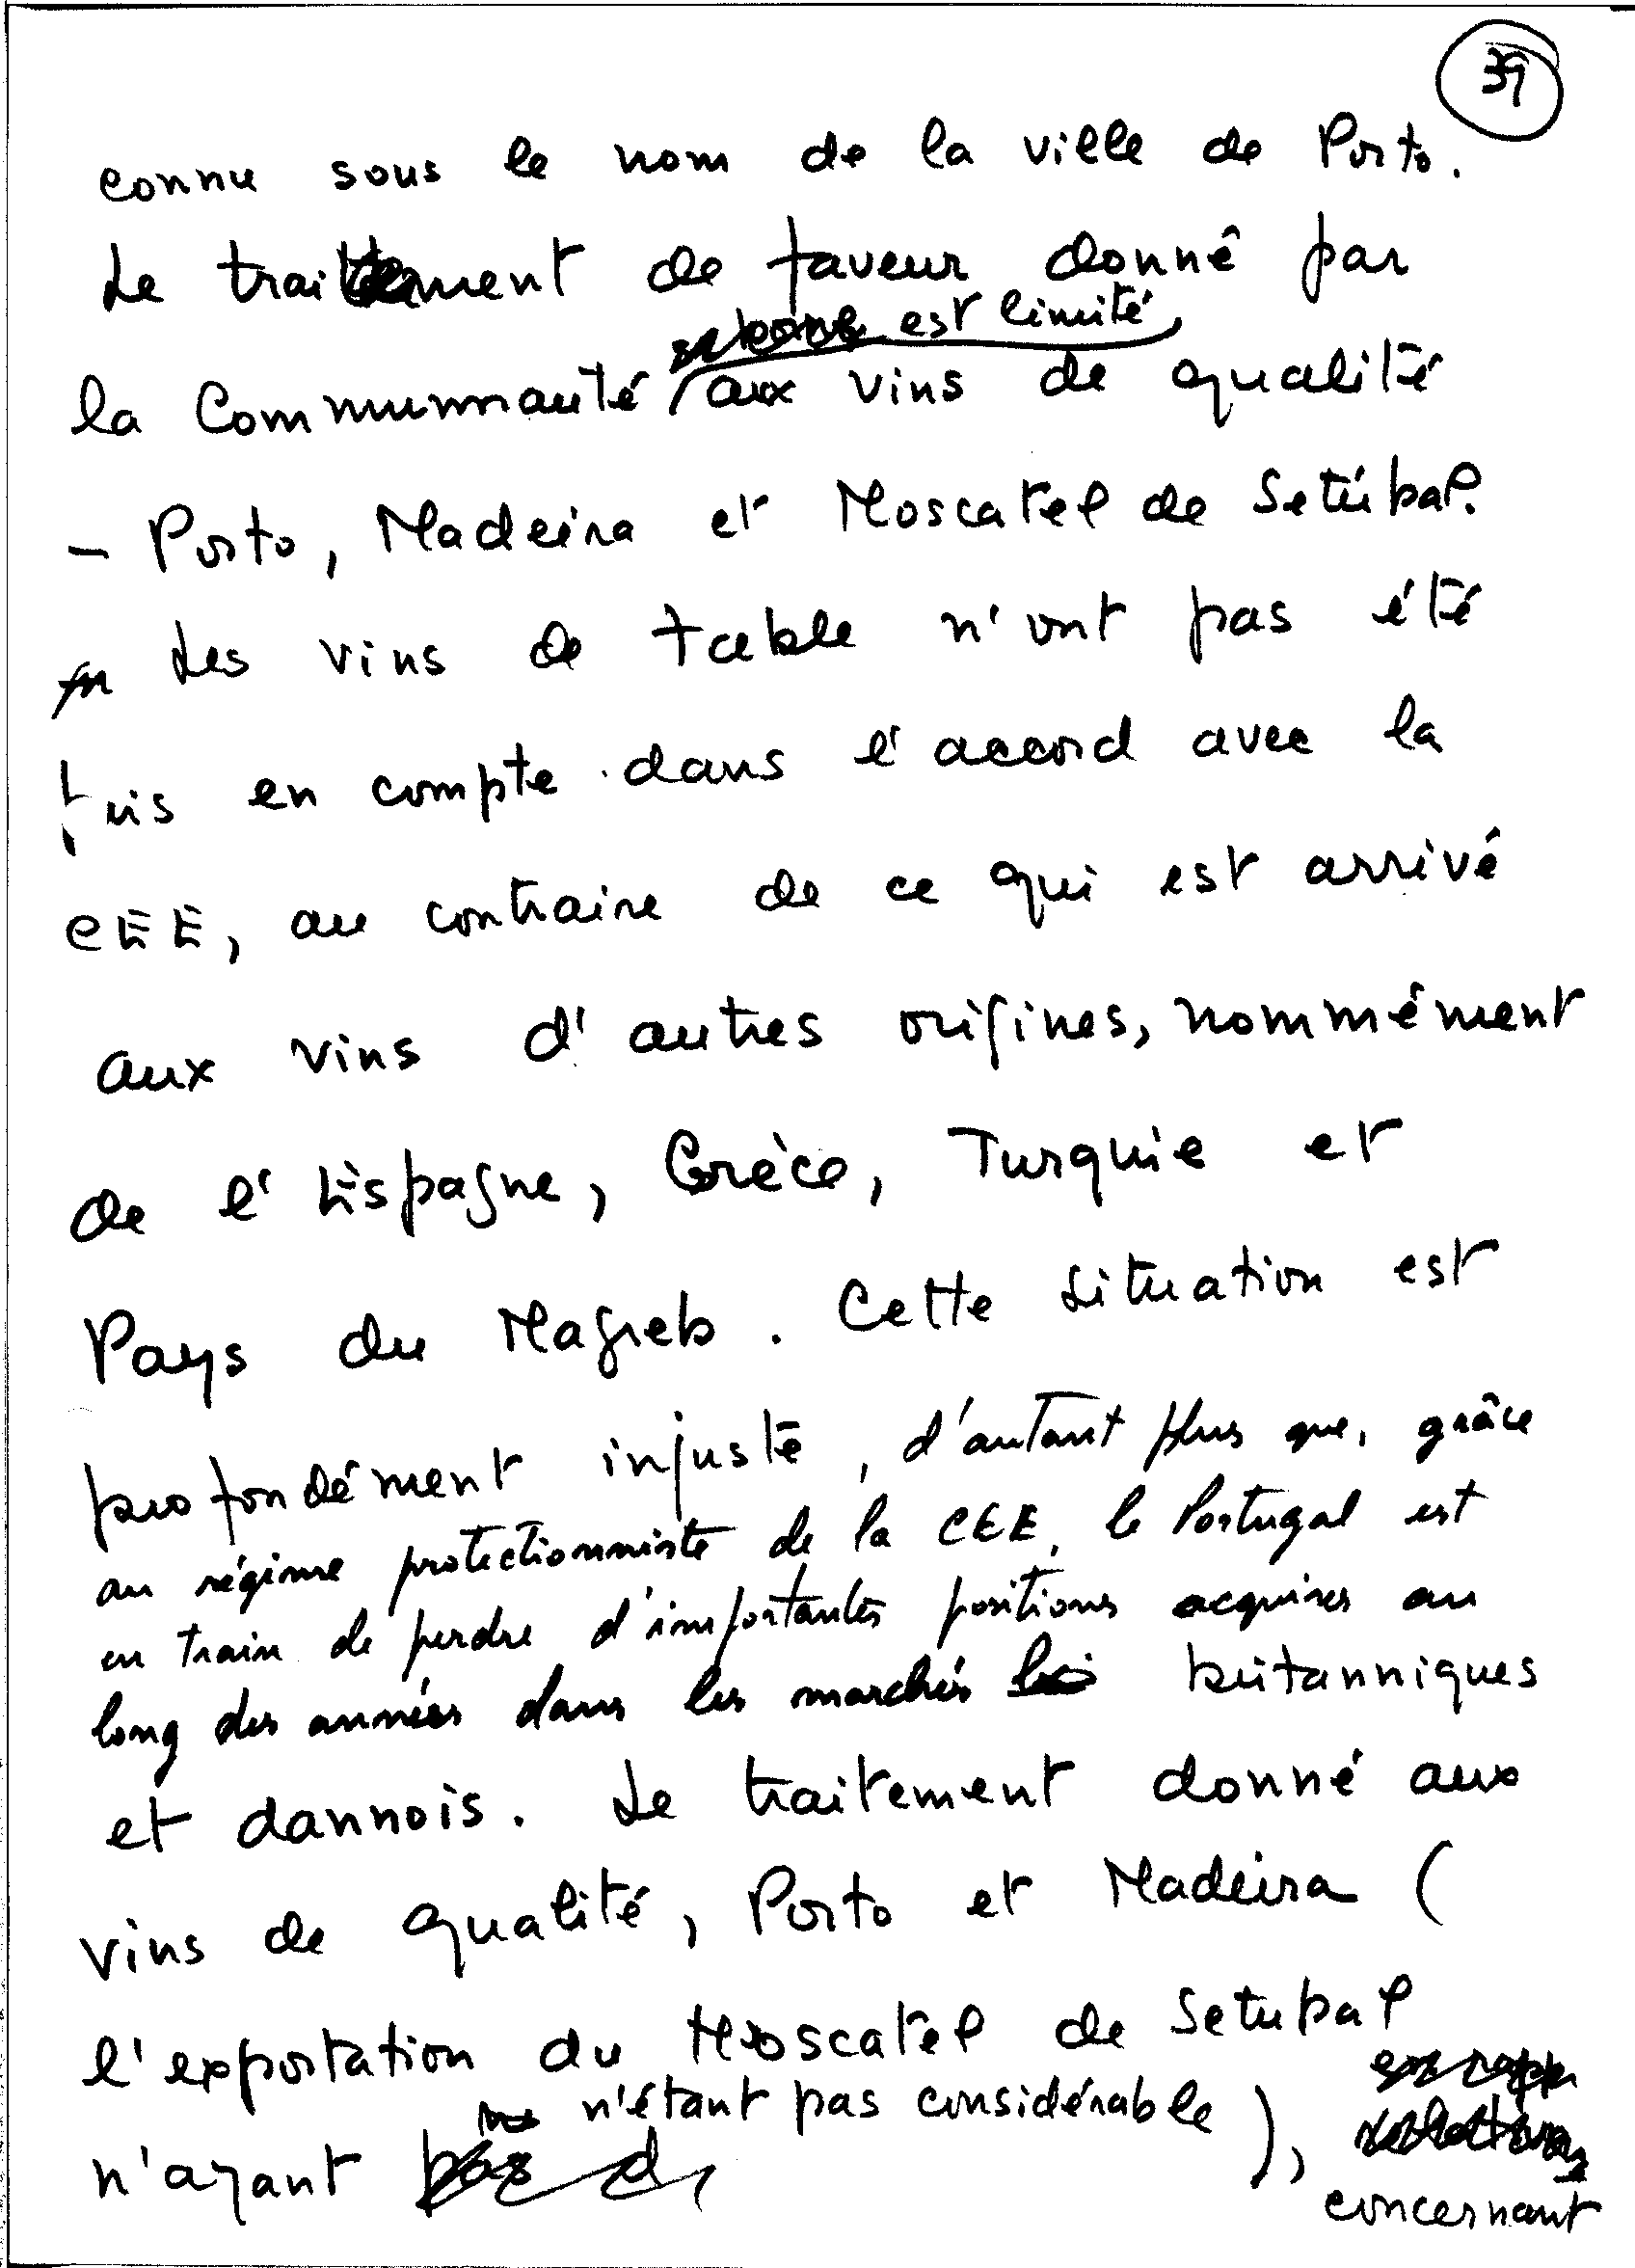 39
connu sous le nom de la ville de Porto.
Le traitement de faveur donné par
est limité
la Communauté aux vins de qualité
- Porto, Madeira et Moscatel de Setúbal.
Les vins de table n'ont pas été
pris en compte dans l'accord avec la
CEE, au contraire de ce qui est arrivé
aux vins d'autres origines, nommément
de l'Espagne, Grèce, Turquie et
Pays du Magreb. Cette situation est
profondément injuste, d'autant plus que, grâce
au régime protectionniste de la CEE, le Portugal est
en train de perdre d'importantes positions acquises au
long des années dans les marchés britanniques
et dannois. Le traitement donné aux
vins de qualité, Porto et Madeira (
l'exportation du Moscatel de Setubal
n'étant pas considérable),
n'ayant
concernant